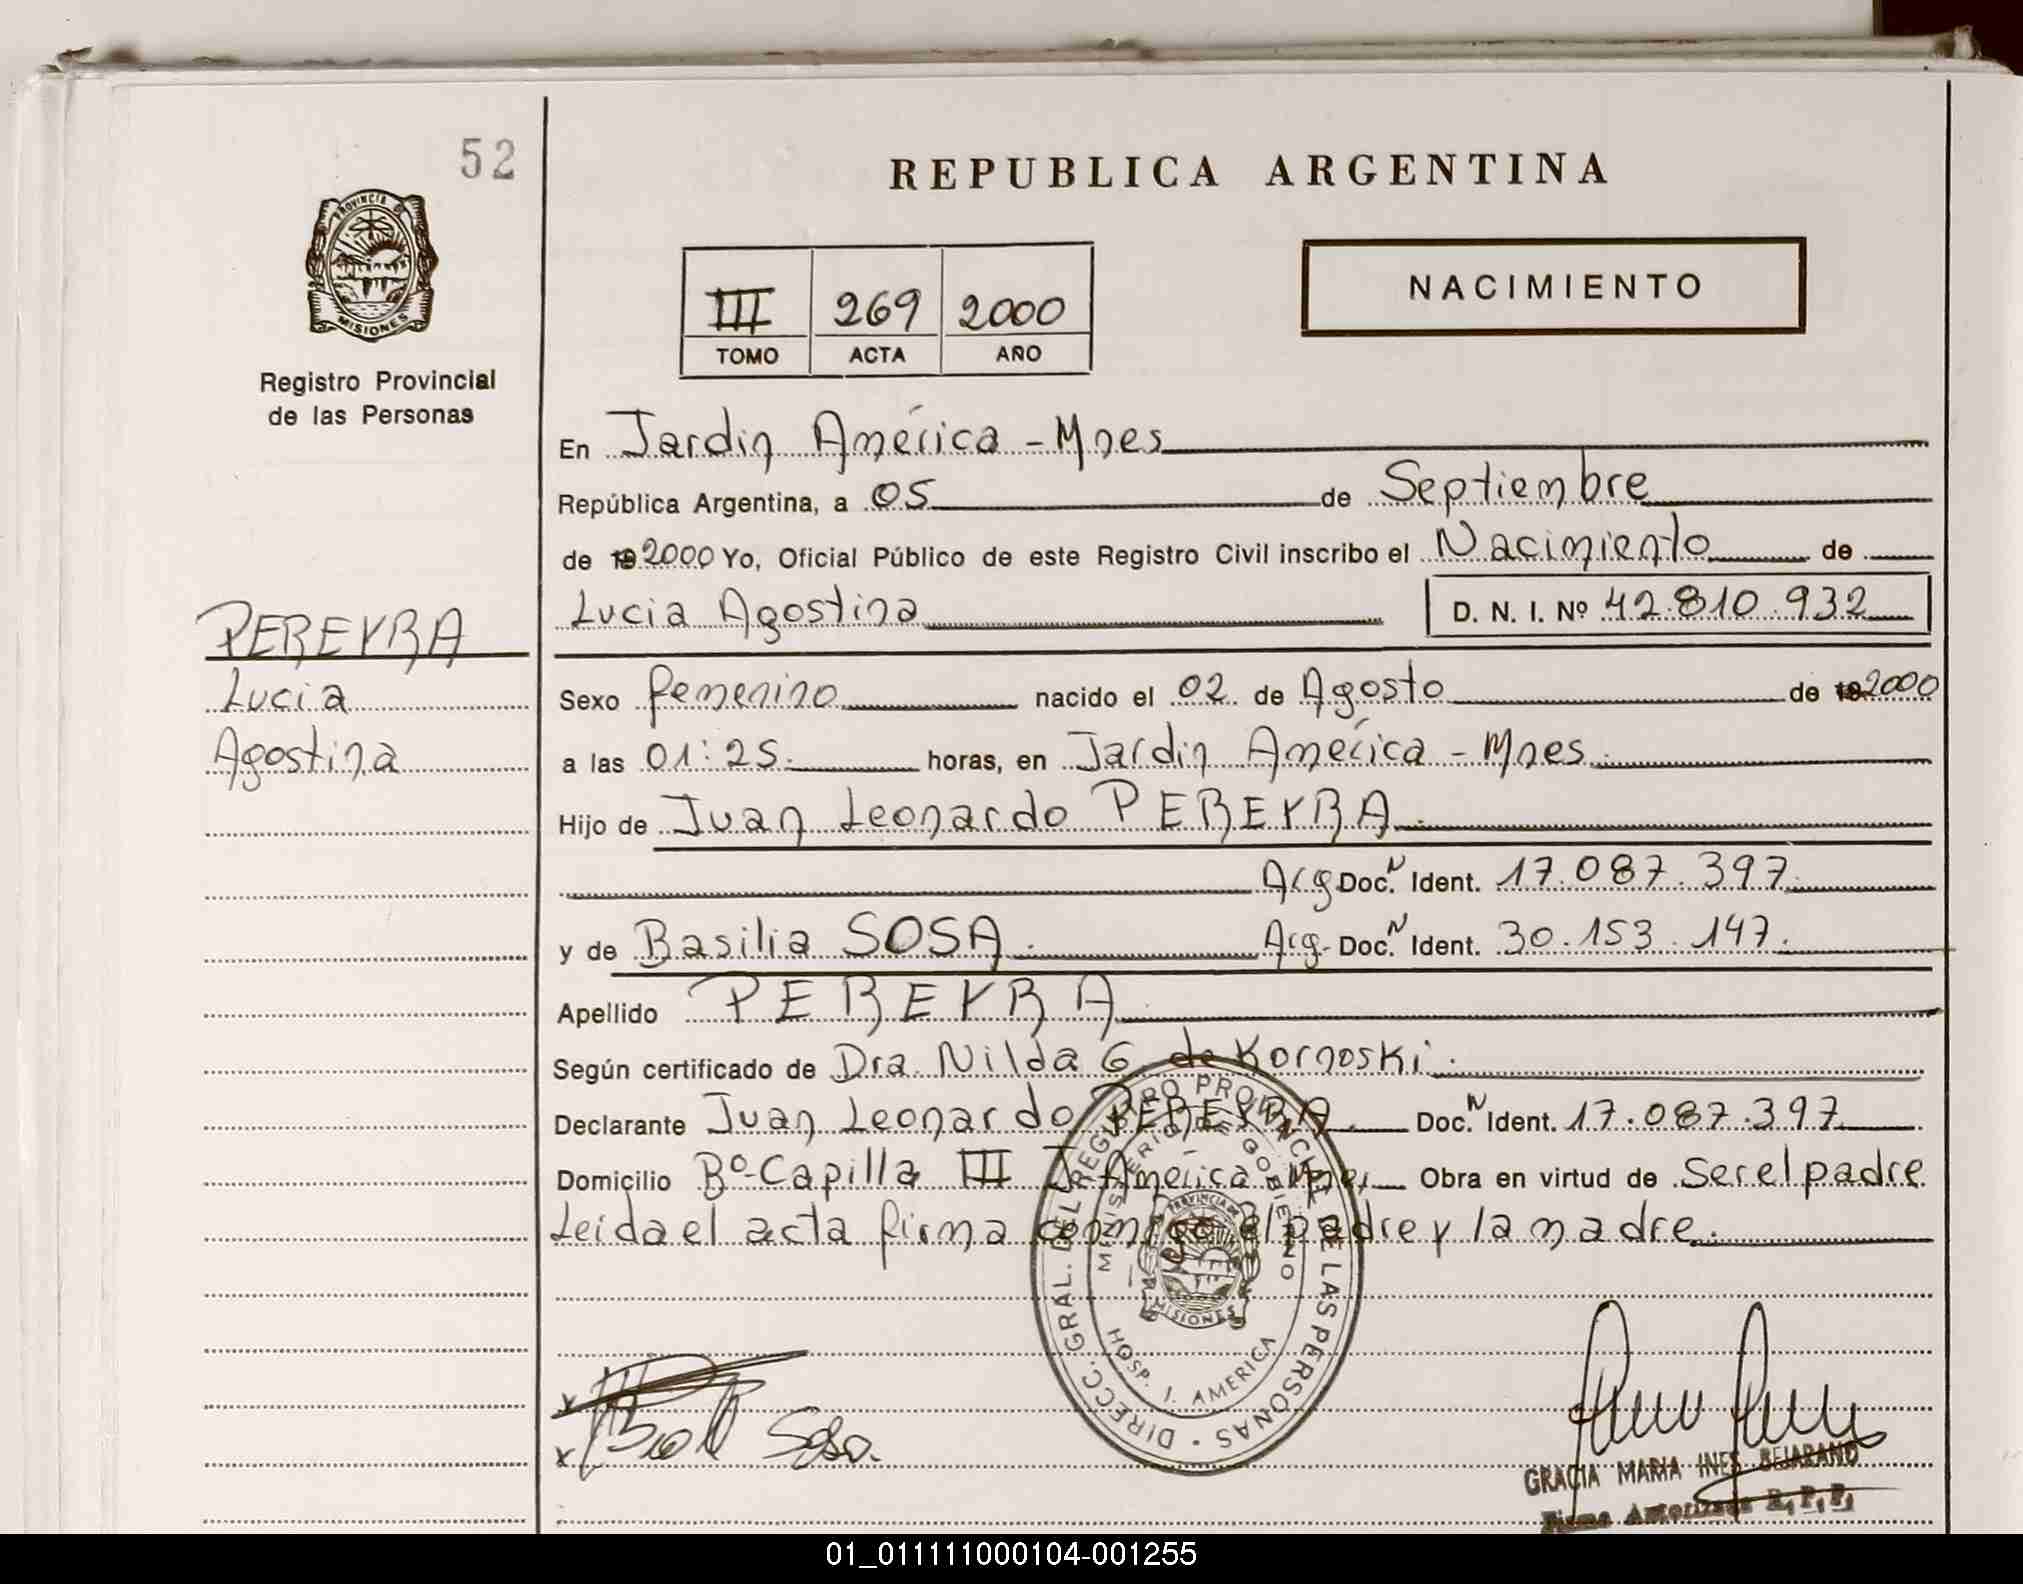 52
REPUBLICA ARGENTINA
PROVINCIA DE
MISIONES
Registro Provincial
de las Personas
III 269 2000
TOMO ACTA AÑO
NACIMIENTO
En Jardin América - Mnes
República Argentina, a 05 de Septiembre
de 19 2000 Yo, Oficial Público de este Registro Civil inscribo el Nacimiento de
Lucia Agostina D. N. I. Nº 42.810.932
PEREYRA
Lucia
Agostina
Sexo femenino nacido el 02 de Agosto de 19 2000
a las 01:25. horas, en Jardin América - Mnes.
Hijo de Juan Leonardo PEREYRA.
Arg Doc. N Ident. 17.087.397
y de Basilia SOSA. Arg- Doc. N Ident. 30.153.147.
Apellido PEREYRA.
Según certificado de Dra. Nilda G de Kornoski.
Declarante Juan Leonardo PEREYRA. Doc. N Ident. 17.087.397
Domicilio Bº-Capilla III J. América Mnes Obra en virtud de Ser el padre
Leida el acta firma conmigo el padre y la madre.
DIRECC. GRAL. DEL REGISTRO PROVINCIAL DE LAS PERSONAS
MINISTERIO DE GOBIERNO
PROVINCIA DE
MISIONES
HOSP. J. AMERICA
x
x Sosa.
GRACIA MARIA INES BEJARANO
Firma Autorizada R.P.P.
01_011111000104-001255